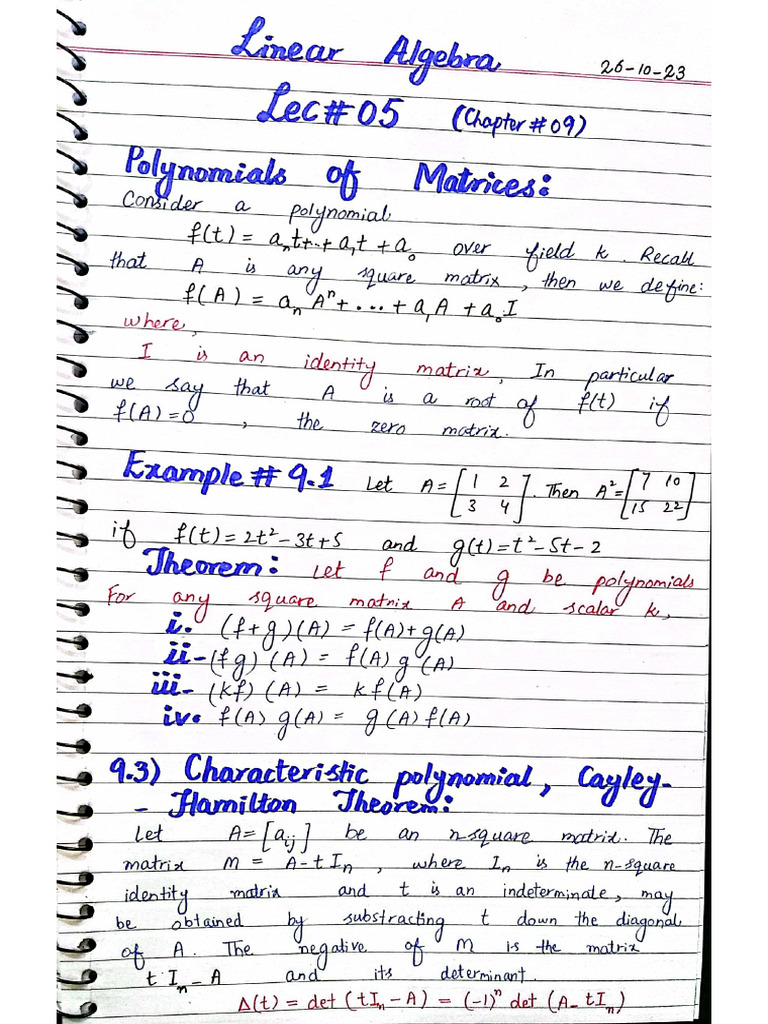 Linear Algebra 26-10-23
Lec# 05 (Chapter # 09)
Polynomials of Matrices:
Consider a polynomial
f(t) = aₙt+..+a₁t + a₀ over field k. Recall
that A is any square matrix, then we define:
f(A) = aₙAⁿ+ ... + a₁A + a₀I
where,
I is an identity matrix, In particular
we say that A is a root of f(t) if
f(A)=0 , the zero matrix.
Example # 9.1 Let A = [1 2 3 4]. Then A²=[7 10 15 22]
if f(t)=2t²-3t+5 and g(t)=t²-5t-2
Theorem: Let f and g be polynomials
For any square matrix A and scalar k,
i. (f+g)(A) = f(A)+g(A)
ii- (fg) (A) = f(A) g (A)
iii- (kf) (A) = kf(A)
iv. f(A) g(A) = g(A) f(A)
9.3) Characteristic polynomial, Cayley-
- Hamilton Theorem:
Let A=[aᵢⱼ] be an n-square matrix. The
matrix M = A-tIₙ , where Iₙ is the n-square
identity matrix and t is an indeterminate, may
be obtained by substracting t down the diagonal
of A. The negative of M is the matrix
t Iₙ - A and its determinant.
Δ(t) = det (tIₙ-A) = (-1)ⁿ det (A-tIₙ)